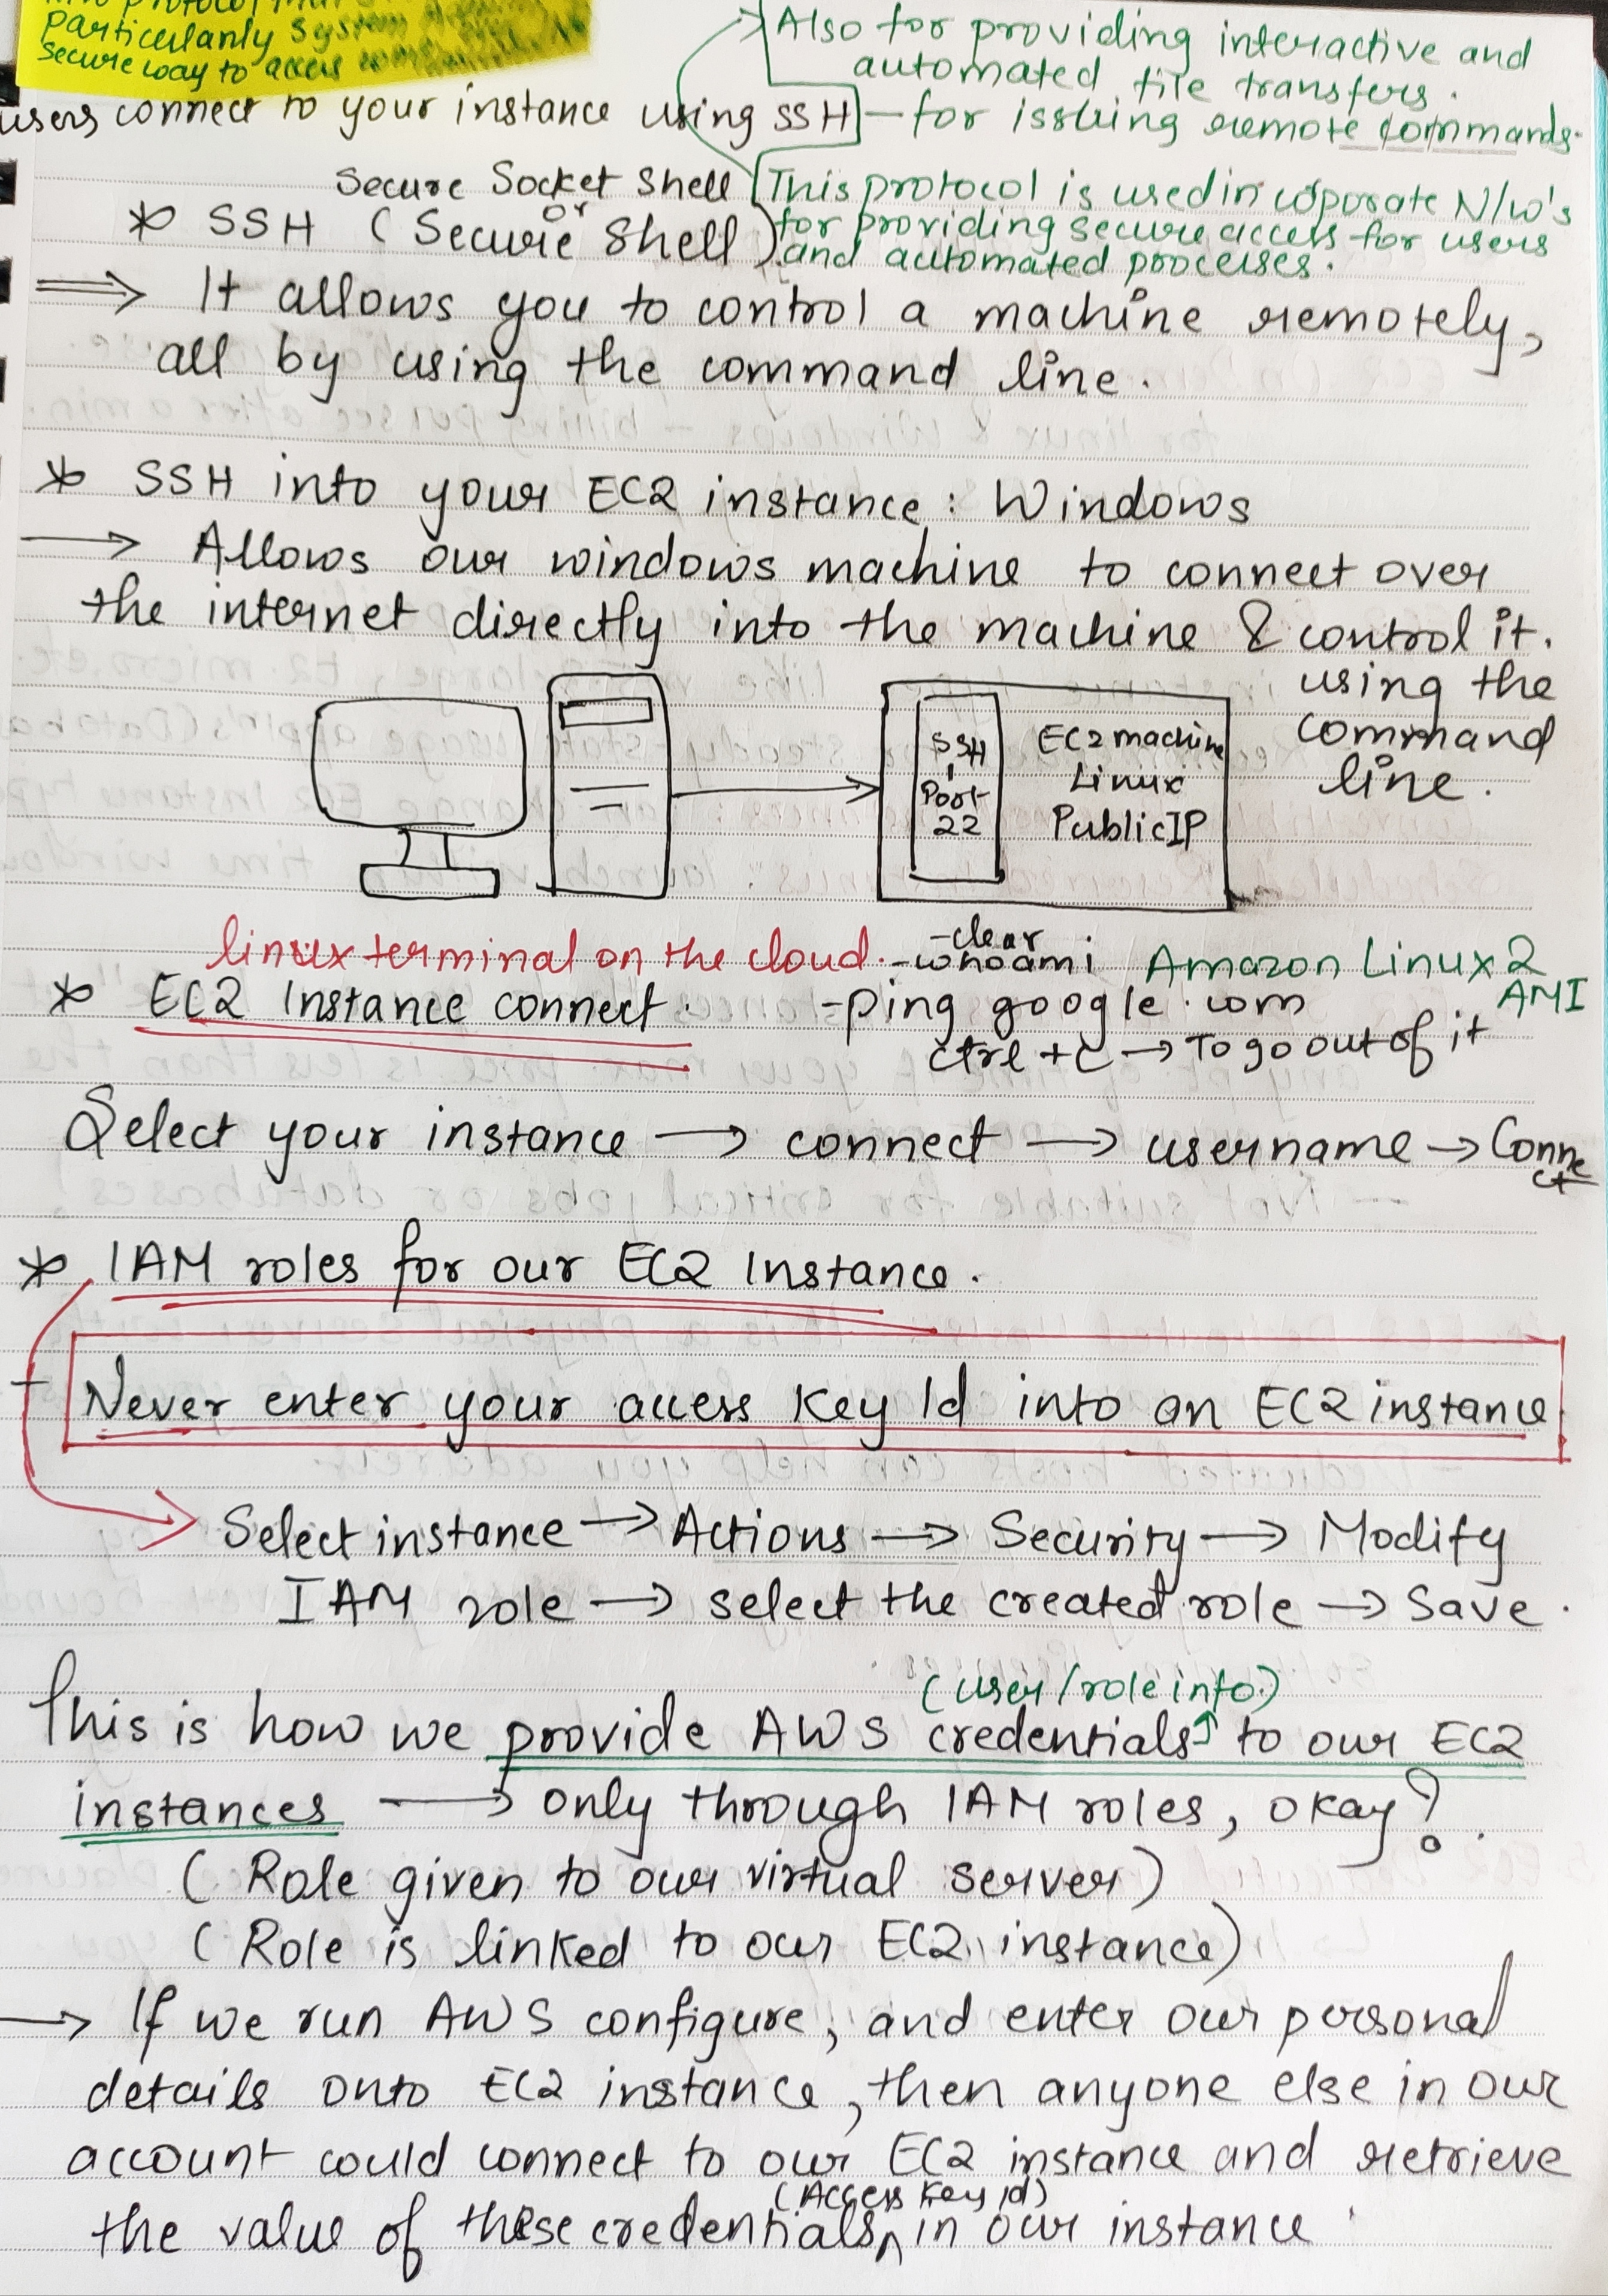 particularly System
secure way to access
Also for providing interactive and
automated file transfers.
users connect to your instance using SSH — for issuing remote commands.
Secure Socket Shell
or
* SSH (Secure Shell)
This protocol is used in coporate N/w's
for providing secure access for users
and automated processes.
⟹ It allows you to control a machine remotely,
all by using the command line.
* SSH into your EC2 instance: Windows
→ Allows our windows machine to connect over
the internet directly into the machine & control it.
using the
command
line.
SSH
Port
22
EC2 machine
Linux
Public IP
linux terminal on the cloud.
-clear
-whoami
Amazon Linux 2
AMI
* EC2 Instance connect.
-ping google.com
ctrl + c → To go out of it
Select your instance → connect → username → Conne
ct
* IAM roles for our EC2 Instance.
Never enter your access Key Id into an EC2 instance
Select instance → Actions → Security → Modify
IAM role → select the created role → Save.
(user/role info.)
This is how we provide AWS credentials to our EC2
instances → only through IAM roles, okay?.
(Role given to our virtual server)
(Role is linked to our EC2 instance)
→ If we run AWS configure, and enter our personal
details onto EC2 instance, then anyone else in our
account could connect to our EC2 instance and retrieve
(Access Key Id)
the value of these credentials, in our instance